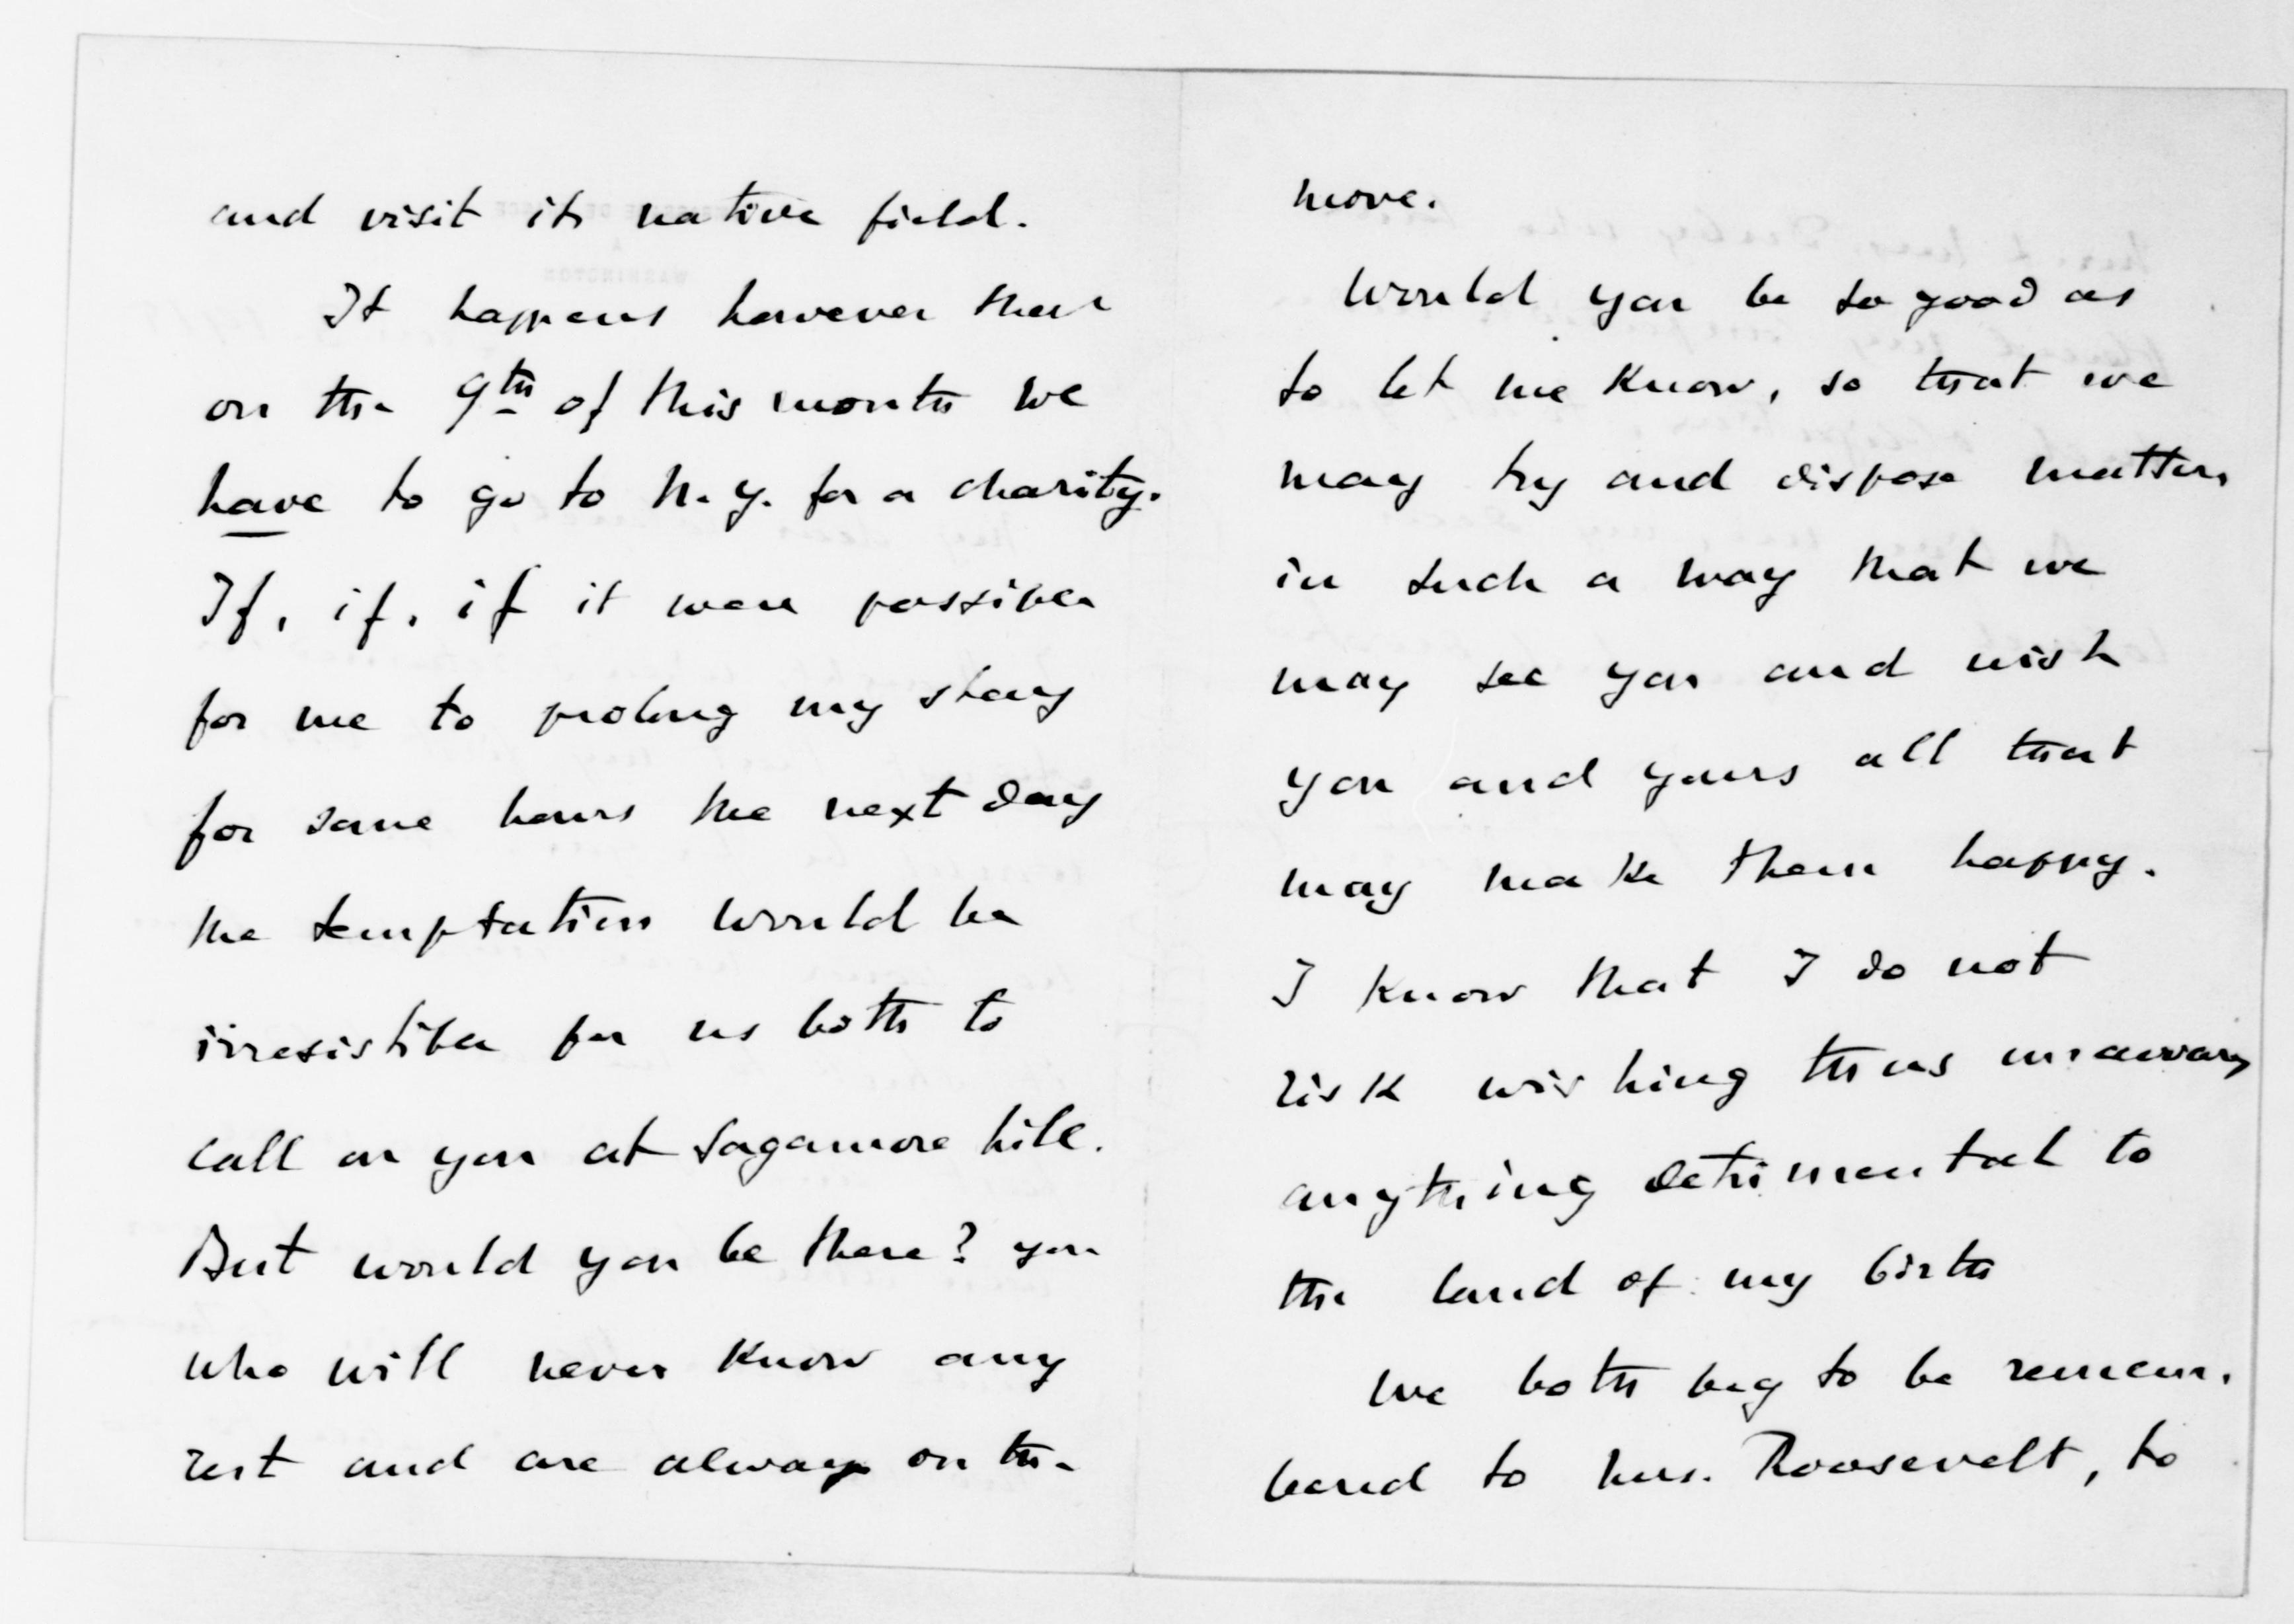 and visit its native field.
It happens however that
on the 9th of this month we
have to go to N.Y. for a charity.
If, if, if it were possible
for me to prolong my stay
for some hours the next day
the temptation would be
irresistible for us both to
call on you at Sagamore hill.
But would you be there? you
who will never know any
rest and are always on the
move.
Would you be so good as
to let me know, so that we
may try and dispose matters
in such a way that we
may see you and wish
you and yours all that
may make them happy.
I know that I do not
risk wishing thus
anything detrimental to
the land of my birth
We both beg to be remem-
bered to Mrs. Roosevelt, to